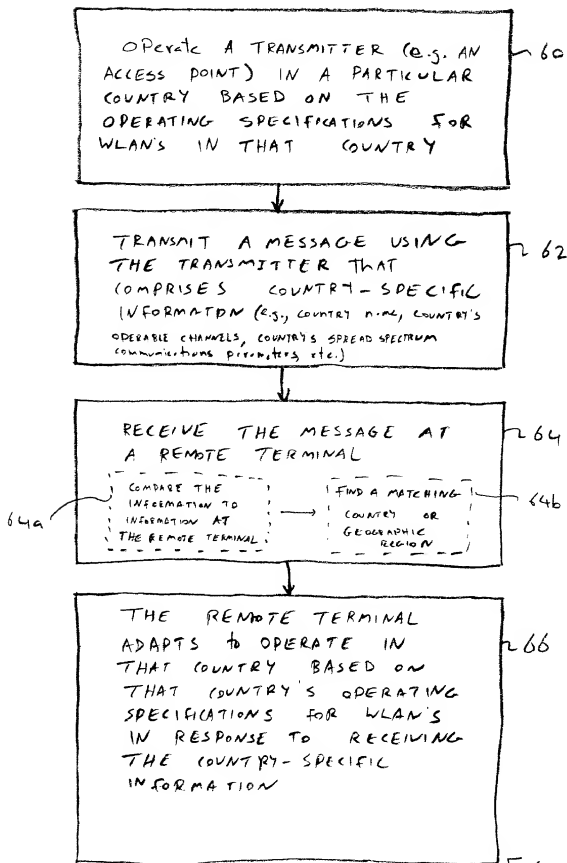 OPerate A TRANSMITTER (e.g. AN
ACCESS POINT) IN A PARTICULAR
COUNTRY BASED ON THE
OPERATING SPECIFICATIONS FOR
WLAN'S IN THAT COUNTRY
60
TRANSMIT A MESSAGE USING
THE TRANSMITTER THAT
COMPRISES COUNTRY-SPECIFIC
INFORMATION (e.g., COUNTRY name, COUNTRY'S
OPERABLE CHANNELS, COUNTRY'S SPREAD SPECTRUM
communications parameters, etc.)
62
RECEIVE THE MESSAGE AT
A REMOTE TERMINAL
64
COMPARE THE
INFORMATION TO
INFORMATION AT
THE REMOTE TERMINAL
64a
FIND A MATCHING
COUNTRY OR
GEOGRAPHIC
REGION
64b
THE REMOTE TERMINAL
ADAPTS to OPERATE IN
THAT COUNTRY BASED ON
THAT COUNTRY'S OPERATING
SPECIFICATIONS FOR WLAN'S
IN RESPONSE TO RECEIVING
THE COUNTRY-SPECIFIC
INFORMATION
66